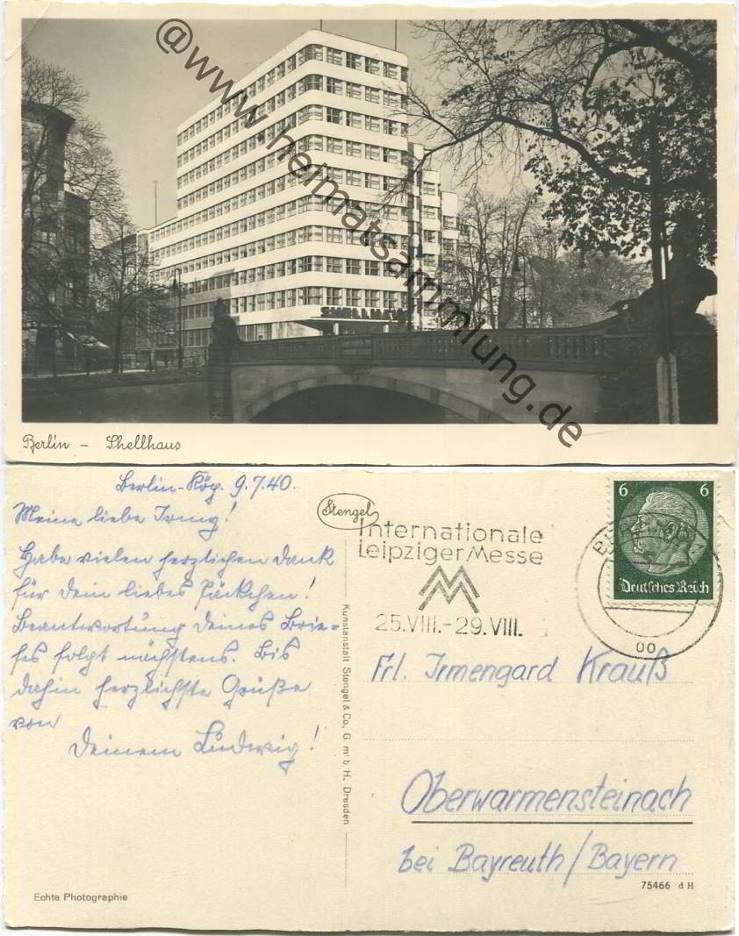 @www.heimatsammlung.de
SHELLHAUS
Berlin - Shellhaus
Berlin-Köp. 9.7.40.
Meine liebe Irmg!
Habe vielen herzlichen Dank
für Dein liebes Päckchen!
Beantwortung Deines Brie=
fes folgt nächstens. Bis
dahin herzlichste Grüße
von
Deinem Ludwig!
Echte Photographie
Stengel
Kunstanstalt Stengel & Co., G. m. b. H., Dresden
Internationale
Leipziger Messe
25.VIII.-29.VIII.
6 6
Deutsches Reich
oo
Frl. Irmengard Krauß
Oberwarmensteinach
bei Bayreuth/Bayern
75466 d H